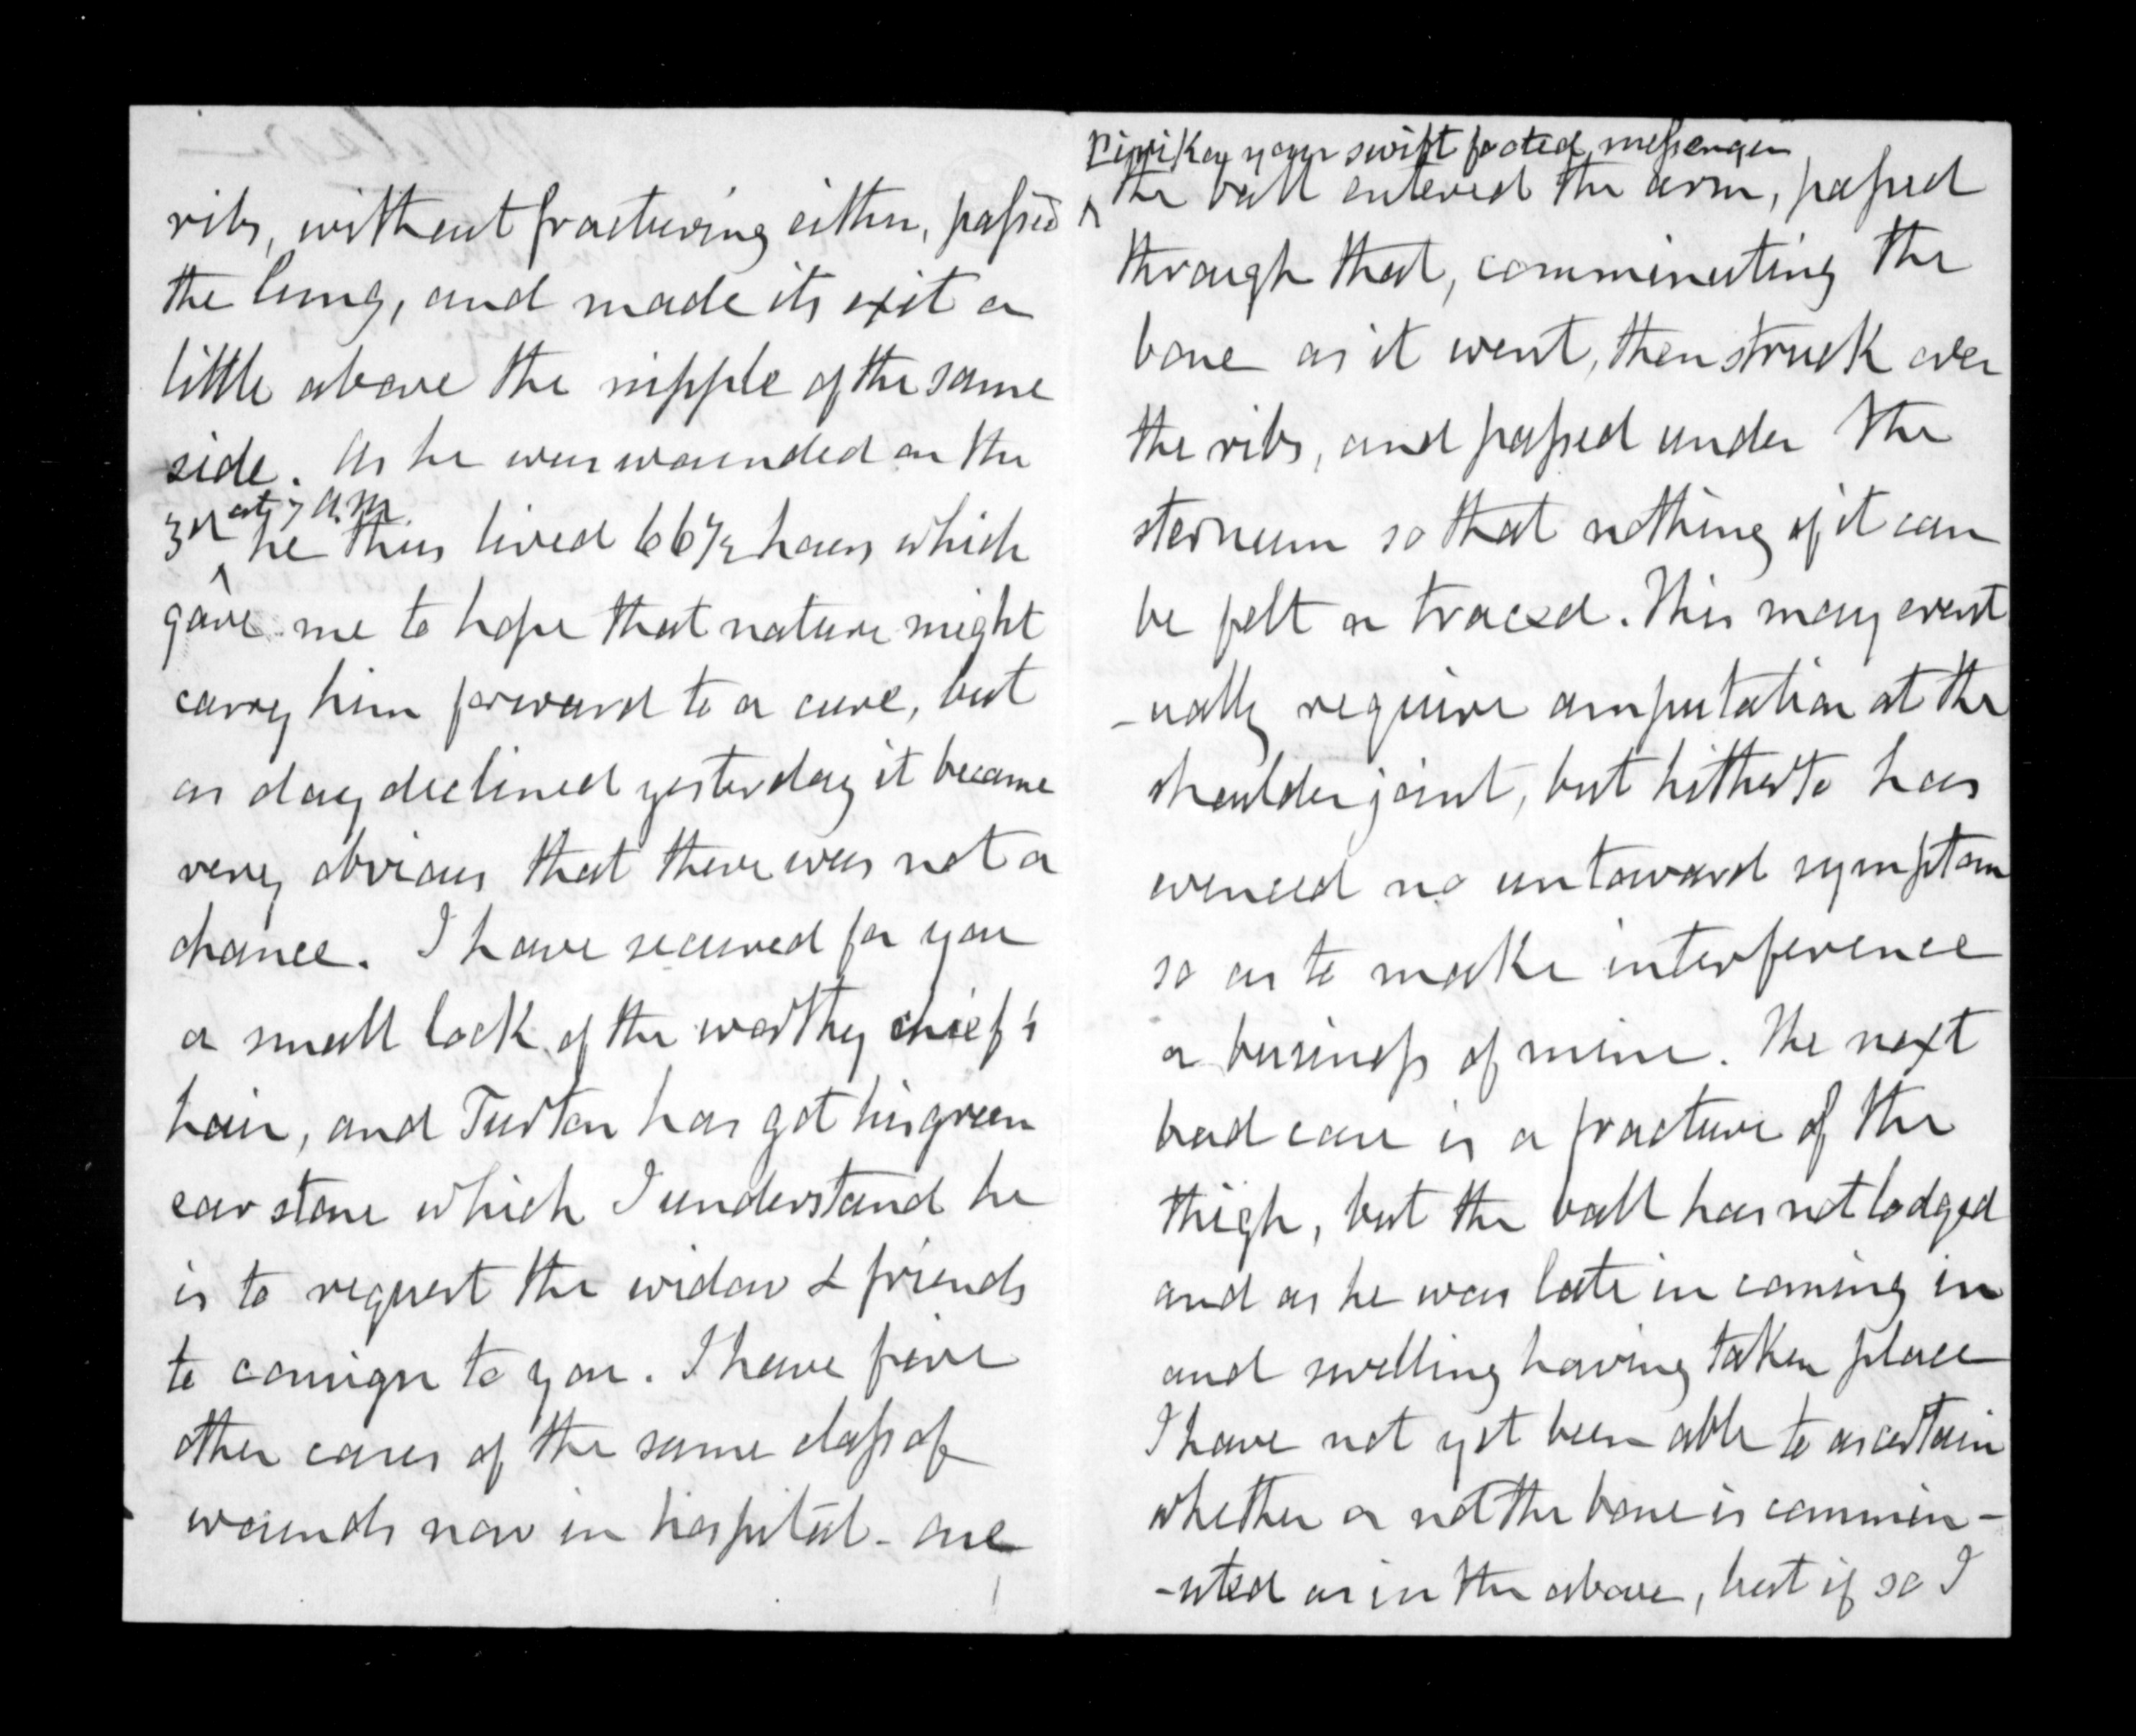 ribs, without fracturing either, passed
the lung, and made its exit a
little above the nipple of the same
side. As he was wounded on the
at 7 A.M.
3rd he thus lived 66½ hours which
gave me to hope that nature might
carry him forward to a cure, but
as day declined yesterday it became
very obvious that there was not a
chance. I have secured for you
a small lock of the worthy chief's
hair, and Turton has got his green
ear stone which I understand he
is to request the widow & friends
to consign to you. I have five
other cases of the same class of
wounds now in hospital - one
your swift footed messenger
the ball entered the arm, passed
through that, comminuting the
bone as it went, then struck over
the ribs, and passed under the
sternum so that nothing of it can
be felt or traced. This may event
-ually require amputation at the
shoulder joint, but hitherto has
evinced no untoward symptom
so as to make interference
a business of mine. The next
bad case is a fracture of the
thigh, but the ball has not lodged
and as he was late in coming in
and swelling having taken place
I have not yet been able to ascertain
whether or not the bone is commin-
-uted as in the above, but if so I